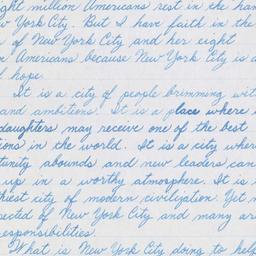 million Americans rest in the han
w York City. But I have faith in the
of New York City and her eight
n Americans because New York City is a
hope.
It is a city of people brimming wit
and ambitions. It is a place where
daughters may receive one of the best
ions in the world. It is a city wher
tunity abounds and new leaders can
up in a worthy atmosphere. It is
hiest city of modern civilization. Yet m
pected of New York City and many ar
esponsibilities.
What is New York City doing to help